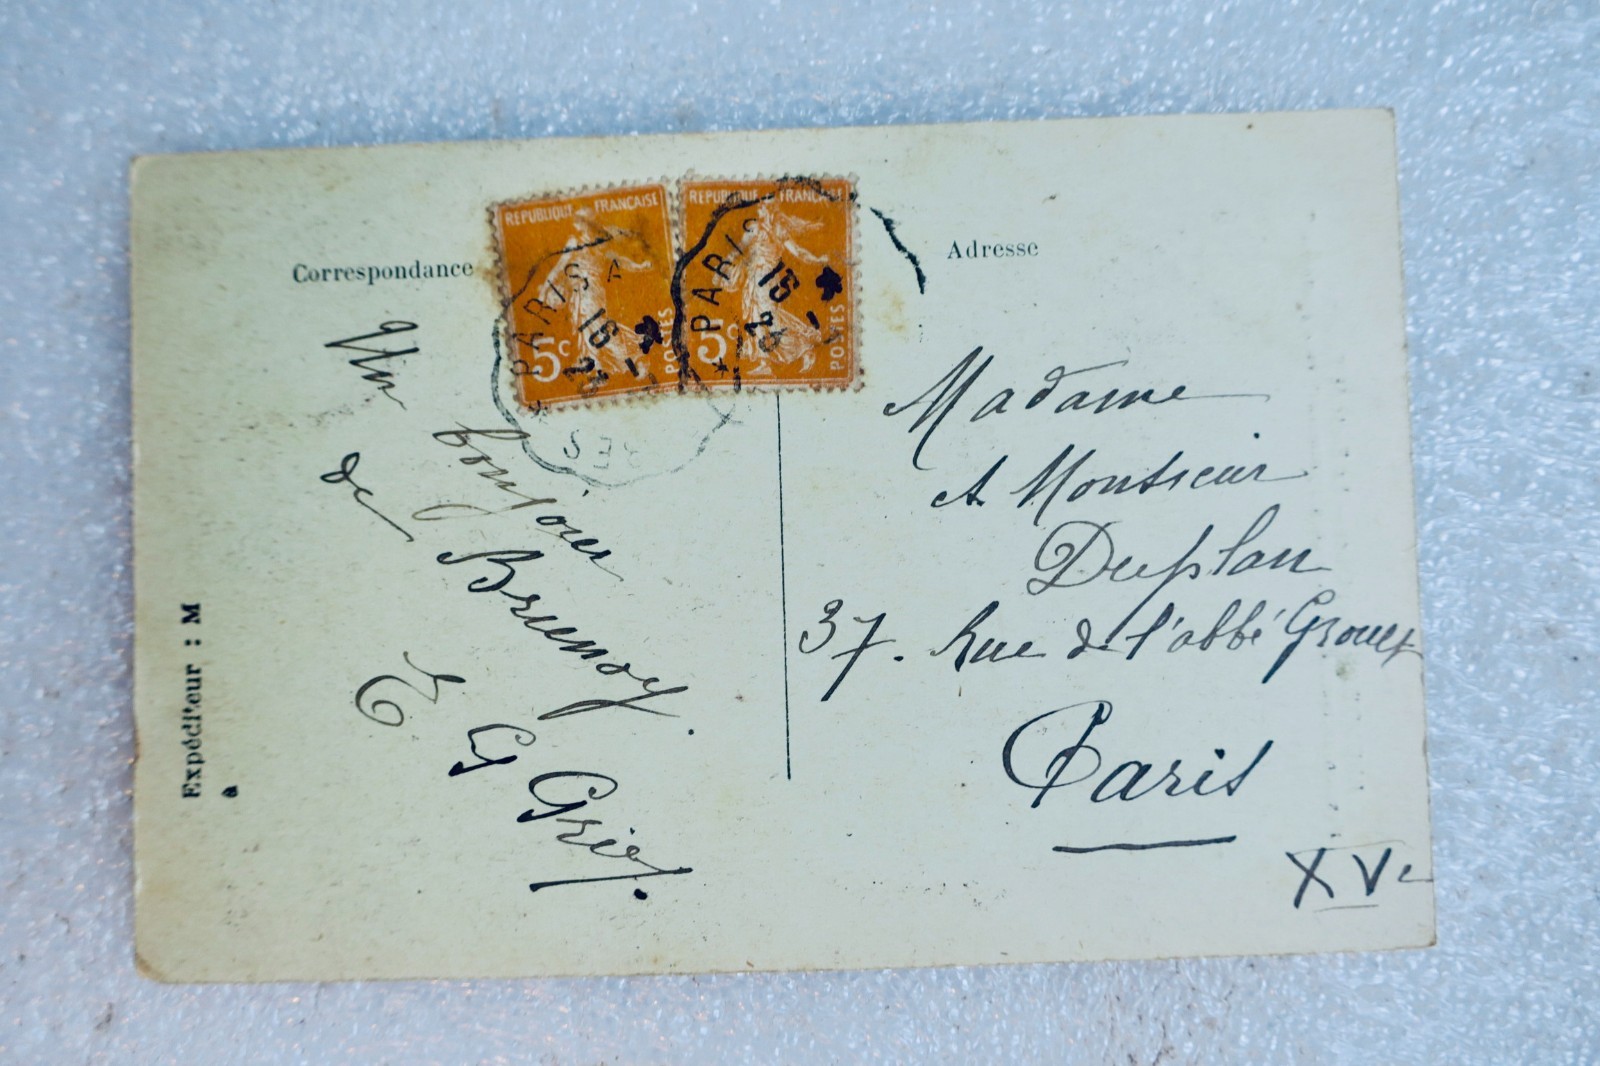 Correspondance
Adresse
REPUBLIQUE FRANÇAISE
5c
POSTES
REPUBLIQUE FRANÇAISE
5c
POSTES
PARIS A
16
PARIS
16
Un bonjour
de Brunoy.
E G Grief.
Expéditeur : M
à
Madame
et Monsieur
Duplan
37. Rue de l'abbé Groult
Paris
XVe